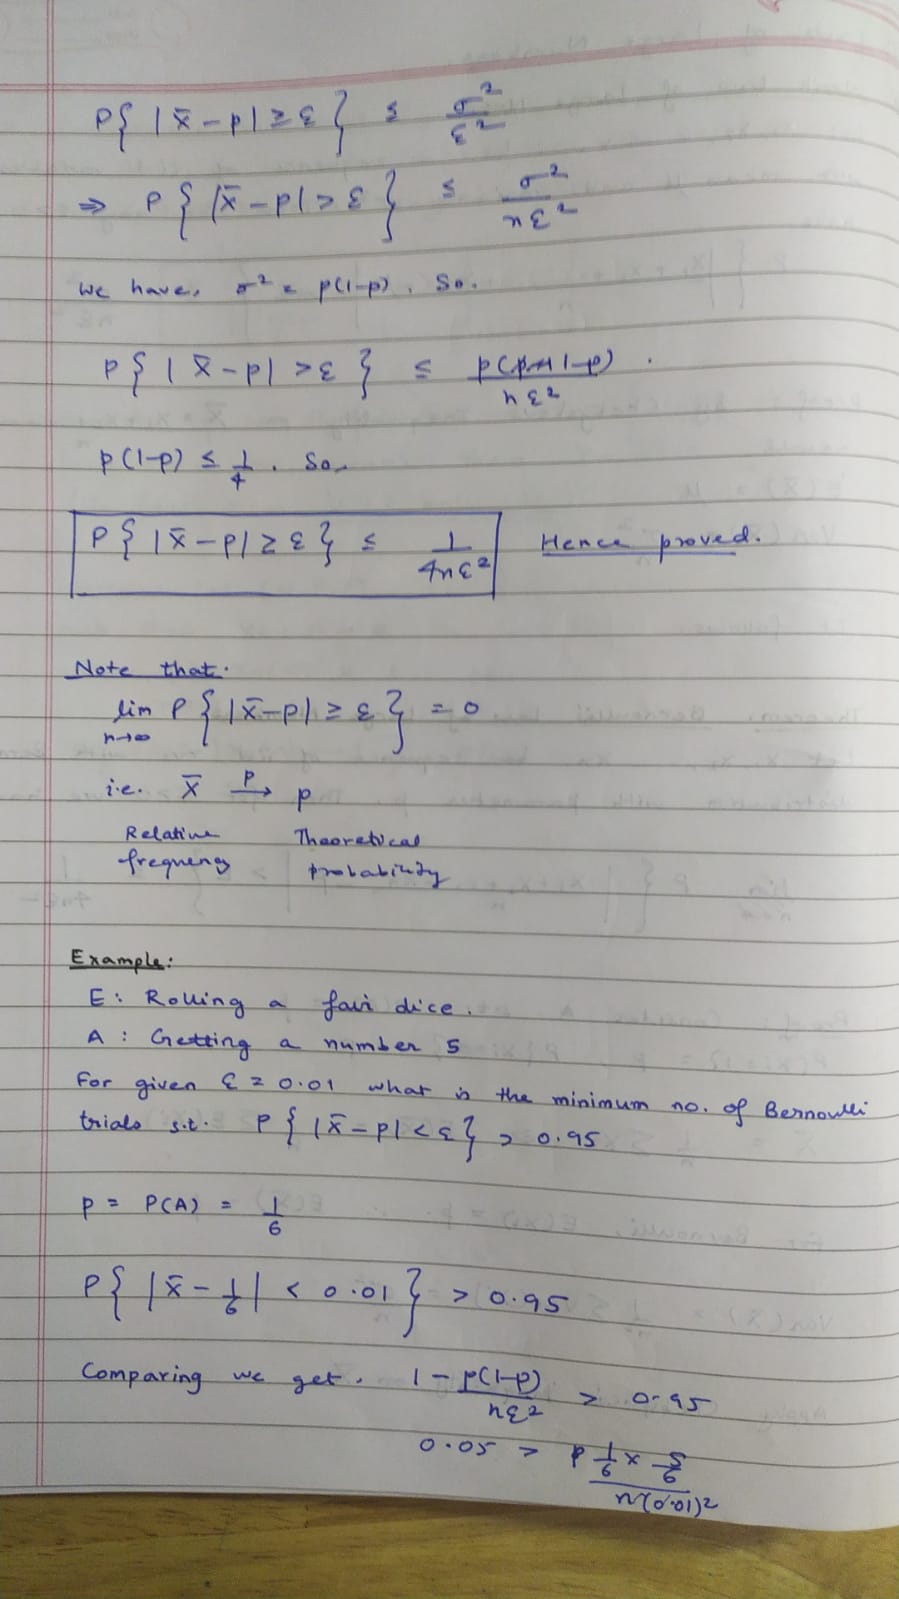 P{ |x̄ - p| ≥ ε } ≤ σ²/ε²
⇒ P{ |x̄ - p| > ε } ≤ σ²/nε²
We have, σ² = p(1-p). So.
P{ | x̄ - p| > ε } ≤ p(1-p)/nε² .
p(1-p) ≤ 1/4 . So,
P{ |x̄ - p| ≥ ε } ≤ 1/4nε² Hence proved.
Note that.
lim n→∞ P{ |x̄ - p| ≥ ε } = 0
i.e. x̄ →ᵖ p
Relative Theoretical
frequency probability
Example:
E : Rolling a fair dice.
A : Getting a number 5
For given ε = 0.01 what is the minimum no. of Bernoulli
trials s.t. P{ |x̄ - p| < ε } > 0.95
p = P(A) = 1/6
P{ |x̄ - 1/6| < 0.01 } > 0.95
Comparing we get. 1 - p(1-p)/nε² > 0.95
0.05 > 1/6 × 5/6 / n(0.01)²